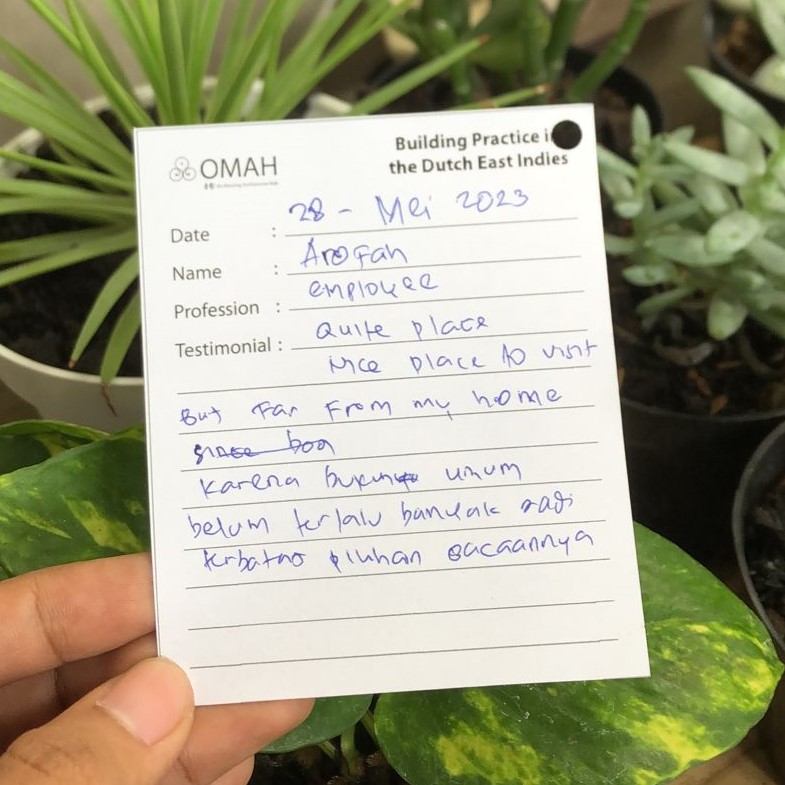 OMAH
Building Practice in
the Dutch East Indies
Date : 28 - Mei 2023
Name : Arofah
Profession : employee
Testimonial : Quite place
nice place to visit
But Far From my home
Karena bukunya umum
belum terlalu banyak jadi
terbatas pilihan bacaannya